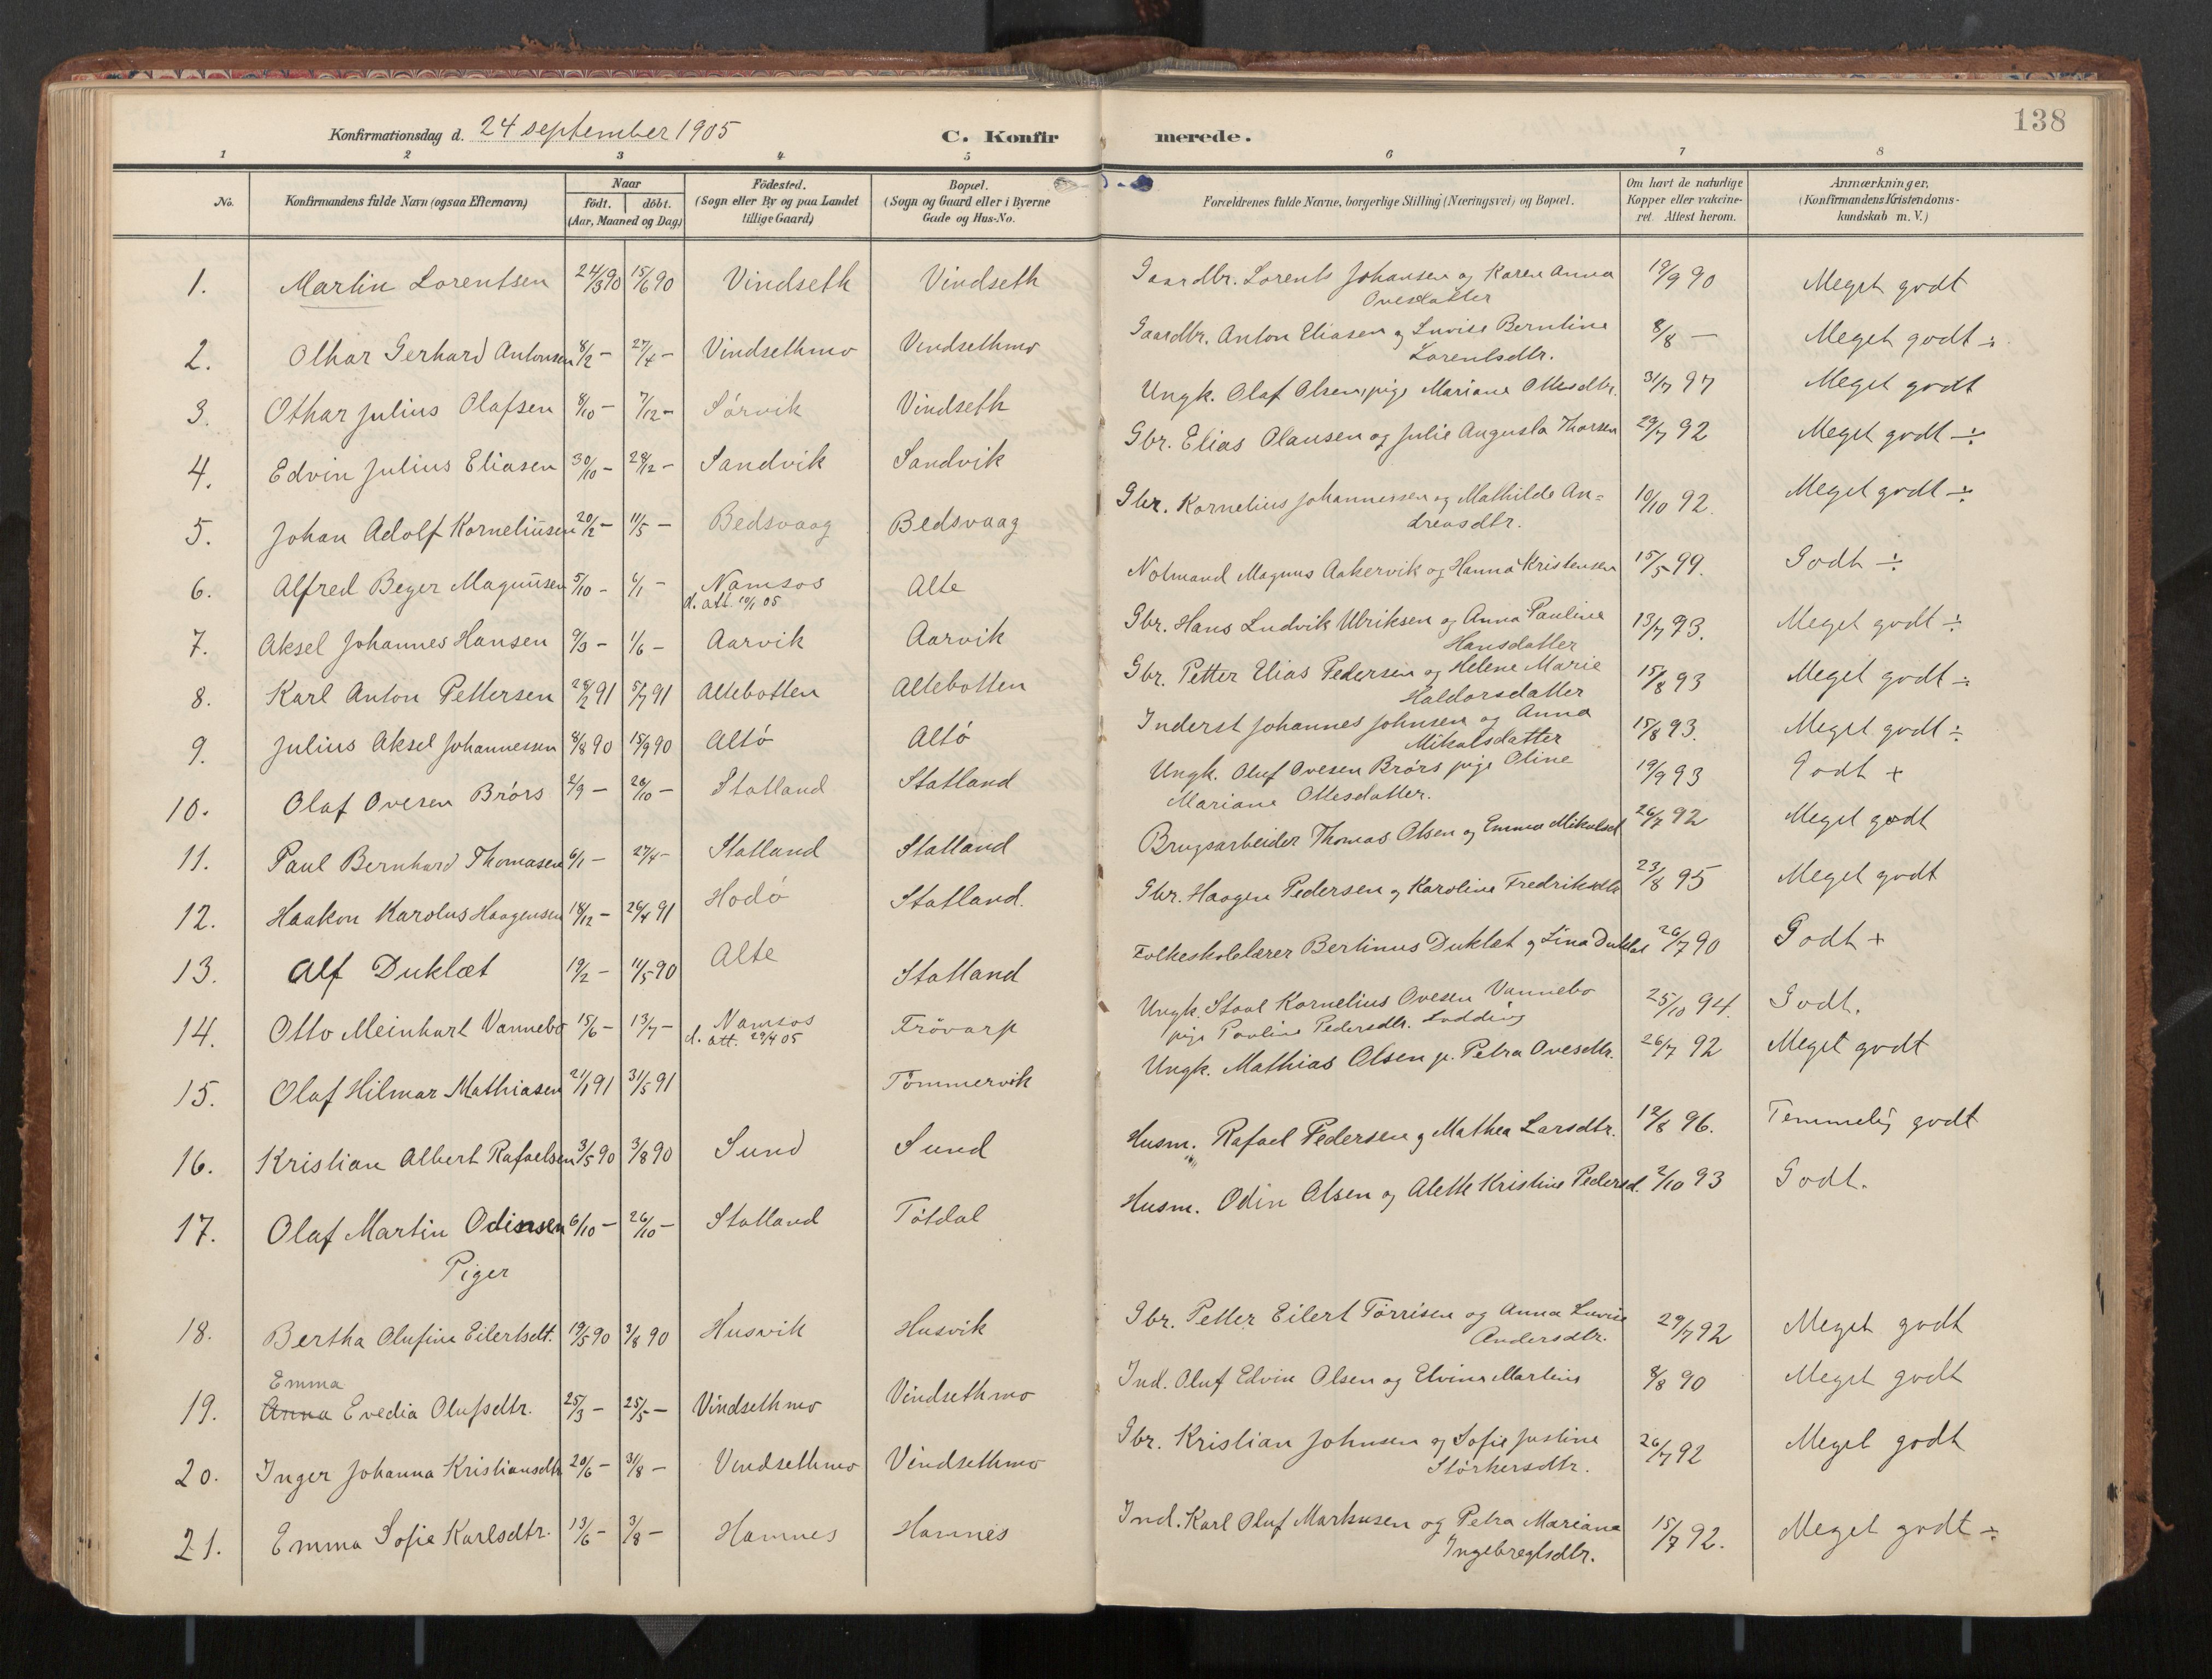 138
Konfirmationsdag d. 24 september 1905 C. Konfirmerede.
1 2 3 4 5 6 7 8
No. Konfirmandens fulde Navn (ogsaa Efternavn) Naar födt. döbt. (Aar, Maaned og Dag) Födested. (Sogn eller By og paa Landet tillige Gaard) Bopæl. (Sogn og Gaard eller i Byerne Gade og Hus-No. Forældrenes fulde Navne, borgerlige Stilling (Næringsvei) og Bopæl. Om havt de naturlige Kopper eller vakcineret. Attest herom. Anmærkninger. (Konfirmandens Kristendomskundskab m. V.)
1. Martin Lorentsen 24/3 90 15/6 90 Vindseth Vindseth Gaardbr. Lorents Johansen og Karen Anna Ovesdatter 19/9 90 Meget godt
2. Othar Gerhard Antonsen 8/2 – 27/4 – Vindsethmo Vindsethmo Gaardbr. Anton Eliasen og Luvise Berntine Lorentsdtr. 8/8 – Meget godt ÷
3. Othar Julius Olafsen 8/10 – 7/12 – Sørvik Vindseth Ungk. Olaf Olsen, pige Mariane Ottesdtr. 31/7 97 Meget godt
4. Edvin Julius Eliasen 30/10 – 28/12 – Sandvik Sandvik Gbr. Elias Olausen og Julie Augusta Thorsen 29/7 92 Meget godt ÷
5. Johan Adolf Korneliusen 20/2 – 11/5 – Bedsvaag Bedsvaag Gbr. Kornelius Johannessen og Mathilde Andreasdtr. 10/10 92. Meget godt ÷
6. Alfred Beger Magnusen 5/10 – 6/1 – Namsos d. att. 10/1 05 Alte Notmand Magnus Aakervik og Hanna Kristensen 15/5 99. Godt ÷
7. Aksel Johannes Hansen 9/3 – 1/6 – Aarvik Aarvik Gbr. Hans Ludvik Ulriksen og Anna Pauline Hansdatter 13/7 93. Meget godt ÷
8. Karl Anton Pettersen 28/2 91 5/7 91 Altebotten Altebotten Gbr. Petter Elias Pedersen og Helene Marie Haldorsdatter 15/8 93 Meget godt ÷
9. Julius Aksel Johannessen 8/8 90 15/9 90 Altø Altø Inderst Johannes Johnsen og Anna Mikalsdatter 15/8 93. Meget godt ÷
10. Olaf Ovesen Brørs 2/9 – 28/10 – Statland Statland Ungk. Oluf Ovesen Brørs pige Oline Mariane Ottesdatter. 19/9 93 Godt +
11. Paul Bernhard Thomasen 6/1 – 27/4 – Statland Statland Brugsarbeider Thomas Olsen og Emma Mikalsd 26/7 92 Meget godt
12. Haakon Karolus Haagensen 18/12 – 26/4 91 Hodø Statland. Gbr. Haagen Pedersen og Karoline Fredriksdtr 23/8 95 Meget godt
13. Alf Duklæt 19/2 – 11/5 90 Alte Statland Folkeskolelærer Bertinus Duklæt og Lina Duklæt 26/7 90 Godt +
14. Otto Meinhart Vannebo 15/6 – 13/7 – Namsos d. att. 29/4 05 Frövarp Ungk. Staal Kornelius Ovesen Vannebo pige Pauline Pedersdtr. Lodding 25/10 94. Godt.
15. Olaf Hilmar Mathiasen 21/1 91 31/5 91 Tømmervik Ungk. Mathias Olsen p. Petra Ovesdtr. 26/7 92 Meget godt
16. Kristian Albert Rafaelsen 3/5 90 3/8 90 Sund Sund Husm. Rafael Pedersen og Mathea Larsdtr. 12/8 96. Temmelig godt
17. Olaf Martin Odinsen 6/10 – 26/10 – Statland Tøtdal Husm. Odin Olsen og Alette Kristine Pedersd. 2/10 93 Godt.
Piger
18. Bertha Olufine Eilertsdt. 19/5 90 3/8 90 Husvik Husvik Gbr. Petter Eilert Tørrisen og Anna Luvise Andersdtr. 29/7 92 Meget godt
Emma
19. Anna Evedia Olufsdtr. 25/3 – 25/5 – Vindsethmo Vindsethmo Ind. Oluf Edvin Olsen og Elvina Martins 8/8 90 Meget godt
20. Inger Johanna Kristiansdtr 20/6 – 3/8 – Vindsethmo Vindsethmo Gbr. Kristian Johnsen og Sofie Justine Størkersdtr. 26/7 92 Meget godt
21. Emma Sofie Karlsdtr. 13/6 – 3/8 – Hamnes Hamnes Ind. Karl Oluf Markusen og Petra Mariana Ingebregtsdtr. 15/7 92. Meget godt ÷